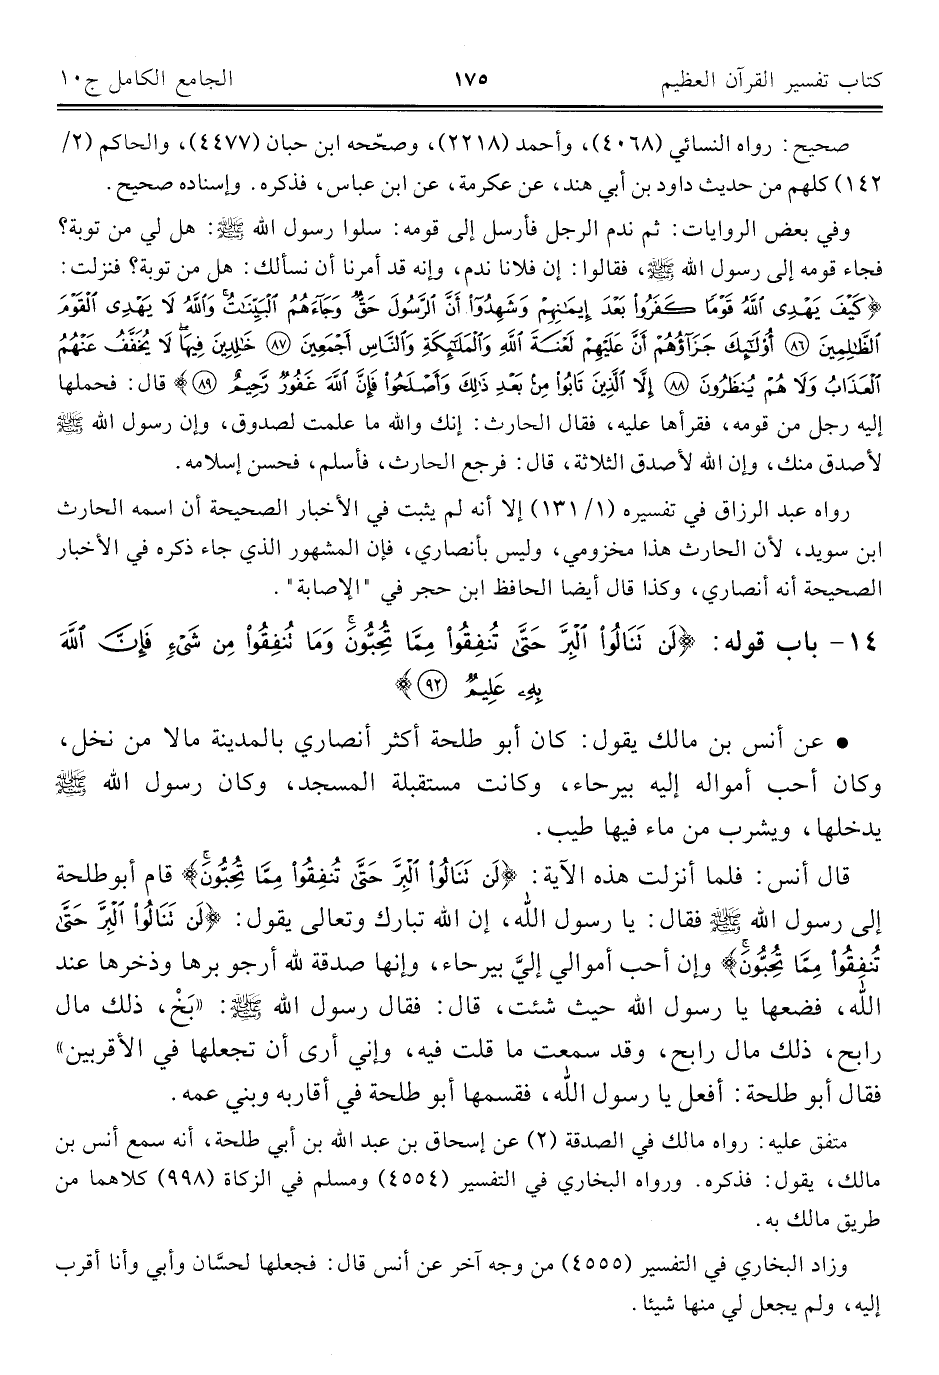 كتاب تفسير القرآن العظيم ١٧٥ الجامع الكامل ج١٠
صحيح: رواه النسائي (٤٠٦٨)، وأحمد (٢٢١٨)، وصحّحه ابن حبان (٤٤٧٧)، والحاكم (٢/
١٤٢) كلهم من حديث داود بن أبي هند، عن عكرمة، عن ابن عباس، فذكره. وإسناده صحيح.
وفي بعض الروايات: ثم ندم الرجل فأرسل إلى قومه: سلوا رسول الله ﷺ: هل لي من توبة؟
فجاء قومه إلى رسول الله ﷺ، فقالوا: إن فلانا ندم، وإنه قد أمرنا أن نسألك: هل من توبة؟ فنزلت:
﴿كَيْفَ يَهْدِى ٱللَّهُ قَوْمًا كَفَرُوا۟ بَعْدَ إِيمَٰنِهِمْ وَشَهِدُوٓا۟ أَنَّ ٱلرَّسُولَ حَقٌّ وَجَآءَهُمُ ٱلْبَيِّنَٰتُ ۚ وَٱللَّهُ لَا يَهْدِى ٱلْقَوْمَ
ٱلظَّٰلِمِينَ ﴿٨٦﴾ أُو۟لَٰٓئِكَ جَزَآؤُهُمْ أَنَّ عَلَيْهِمْ لَعْنَةَ ٱللَّهِ وَٱلْمَلَٰٓئِكَةِ وَٱلنَّاسِ أَجْمَعِينَ ﴿٨٧﴾ خَٰلِدِينَ فِيهَا ۖ لَا يُخَفَّفُ عَنْهُمُ
ٱلْعَذَابُ وَلَا هُمْ يُنظَرُونَ ﴿٨٨﴾ إِلَّا ٱلَّذِينَ تَابُوا۟ مِنۢ بَعْدِ ذَٰلِكَ وَأَصْلَحُوا۟ فَإِنَّ ٱللَّهَ غَفُورٌ رَّحِيمٌ ﴿٨٩﴾﴾ قال: فحملها
إليه رجل من قومه، فقرأها عليه، فقال الحارث: إنك والله ما علمت لصدوق، وإن رسول الله ﷺ
لأصدق منك، وإن الله لأصدق الثلاثة، قال: فرجع الحارث، فأسلم، فحسن إسلامه.
رواه عبد الرزاق في تفسيره (١/ ١٣١) إلا أنه لم يثبت في الأخبار الصحيحة أن اسمه الحارث
ابن سويد، لأن الحارث هذا مخزومي، وليس بأنصاري، فإن المشهور الذي جاء ذكره في الأخبار
الصحيحة أنه أنصاري، وكذا قال أيضا الحافظ ابن حجر في "الإصابة".
١٤- باب قوله: ﴿لَن تَنَالُوا۟ ٱلْبِرَّ حَتَّىٰ تُنفِقُوا۟ مِمَّا تُحِبُّونَ ۚ وَمَا تُنفِقُوا۟ مِن شَىْءٍ فَإِنَّ ٱللَّهَ
بِهِۦ عَلِيمٌ ﴿٩٢﴾﴾
• عن أنس بن مالك يقول: كان أبو طلحة أكثر أنصاري بالمدينة مالا من نخل،
وكان أحب أمواله إليه بيرحاء، وكانت مستقبلة المسجد، وكان رسول الله ﷺ
يدخلها، ويشرب من ماء فيها طيب.
قال أنس: فلما أنزلت هذه الآية: ﴿لَن تَنَالُوا۟ ٱلْبِرَّ حَتَّىٰ تُنفِقُوا۟ مِمَّا تُحِبُّونَ ۚ﴾ قام أبو طلحة
إلى رسول الله ﷺ فقال: يا رسول الله، إن الله تبارك وتعالى يقول: ﴿لَن تَنَالُوا۟ ٱلْبِرَّ حَتَّىٰ
تُنفِقُوا۟ مِمَّا تُحِبُّونَ ۚ﴾ وإن أحب أموالي إليَّ بيرحاء، وإنها صدقة لله أرجو برها وذخرها عند
الله، فضعها يا رسول الله حيث شئت، قال: فقال رسول الله ﷺ: «بَخْ، ذلك مال
رابح، ذلك مال رابح، وقد سمعت ما قلت فيه، وإني أرى أن تجعلها في الأقربين»
فقال أبو طلحة: أفعل يا رسول الله، فقسمها أبو طلحة في أقاربه وبني عمه.
متفق عليه: رواه مالك في الصدقة (٢) عن إسحاق بن عبد الله بن أبي طلحة، أنه سمع أنس بن
مالك، يقول: فذكره. ورواه البخاري في التفسير (٤٥٥٤) ومسلم في الزكاة (٩٩٨) كلاهما من
طريق مالك به.
وزاد البخاري في التفسير (٤٥٥٥) من وجه آخر عن أنس قال: فجعلها لحسَّان وأبي وأنا أقرب
إليه، ولم يجعل لي منها شيئا.